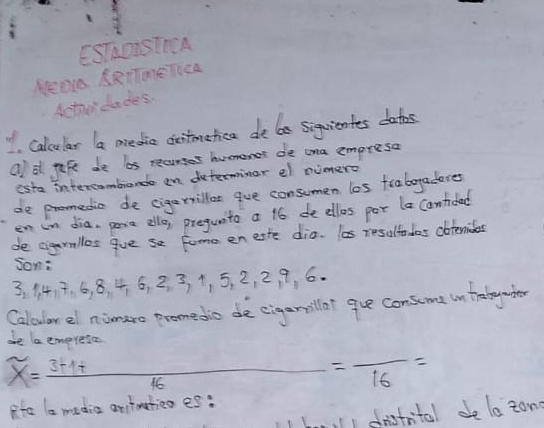 ESTADISTICA
MEDIA ARITMETICA
Actividades.
1. Calcular la media aritmetica de los siguientes datos
a) El jefe de los recursos humanos de una empresa
esta intercambiando en determinar el número
de promedio de cigarrillos que consumen los trabajadores
en un dia. para ello, pregunta a 16 de ellos por la cantidad
de cigarrillos que se fuma en este dia. los resultados obtenidos
son:
3, 1, 4, 7, 6, 8, 4, 6, 2, 3, 1, 5, 2, 2, 9, 6.
Calcular el número promedio de cigarrillos que consume un trabajador
de la empresa
X = 3+1+ / 16 = / 16 =
Rta la media aritmetica es:
distrital de la zona